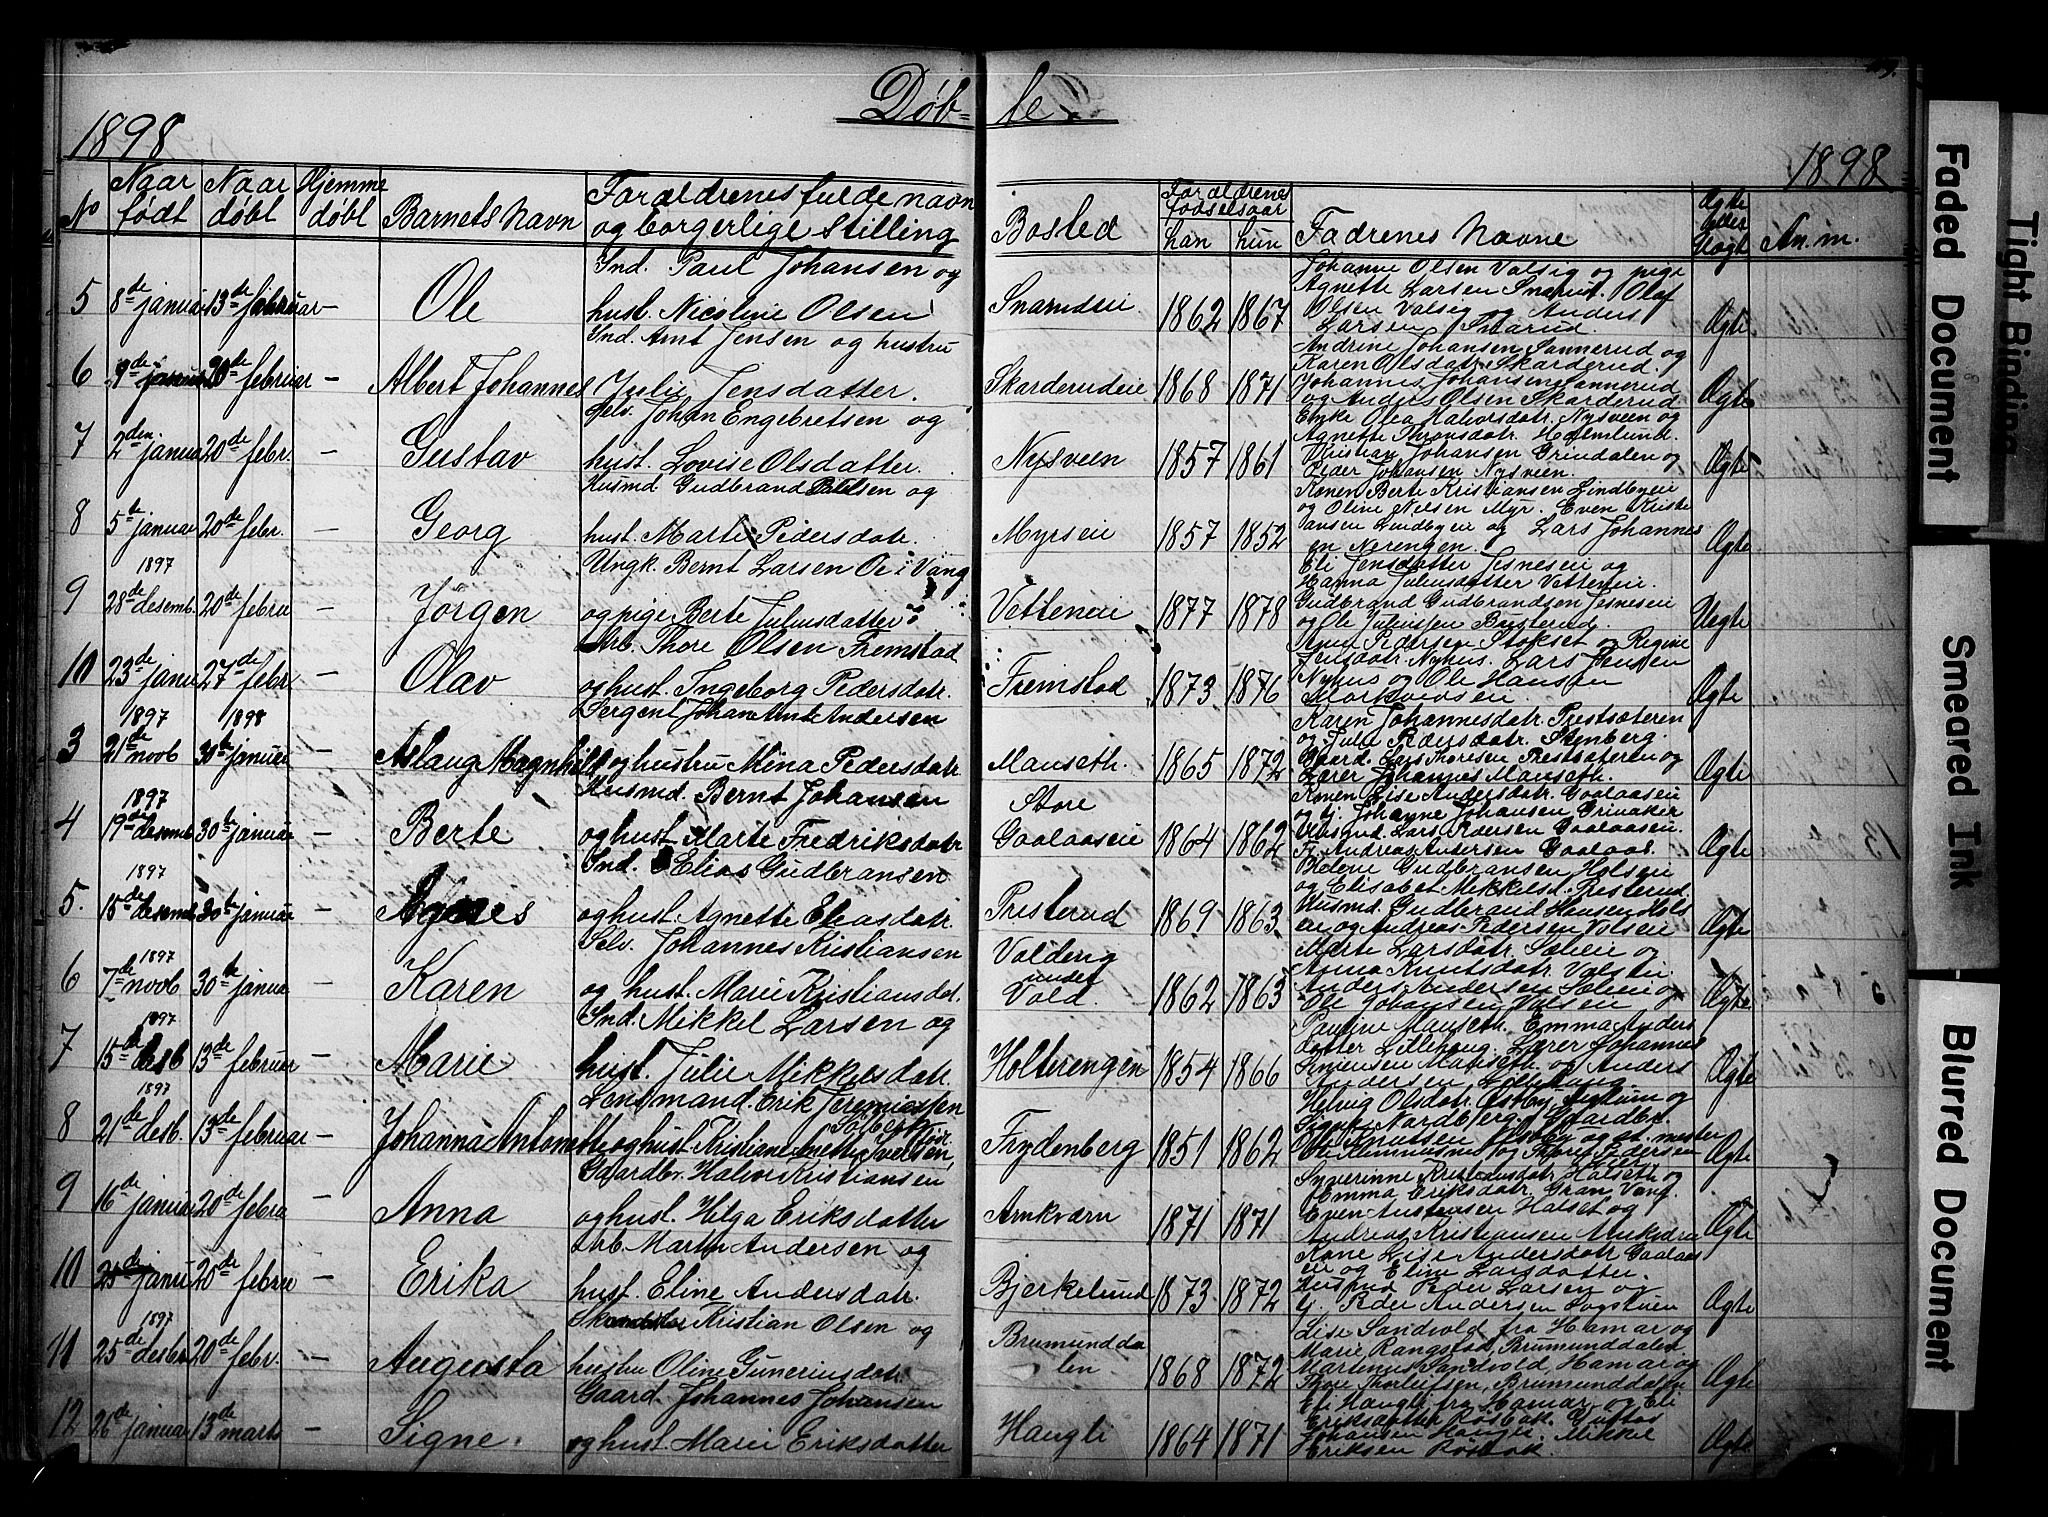 Døb- te.
1898
1898
No
Naar født
Naar døbt
Hjemme døbt
Barnets Navn
Forældrenes fulde navn og borgerlige Stilling
Bosted
Forældrenes fødselsaar
han
hun
Fadrenes Navne
Ægte eller Uægte
An.m.
5 8de januar 13de februar – Ole
Ind. Paul Johansen og
hust. Nicoline Olsen
1862 1867
Johanne Olsen Valsig og pige
Agnette Larsen Snarud. Olaf
Olsen Valsig og Anders
Larsen Snarud.
Ægte
6 9de januar 20de februar – Albert Johannes
Ind. Amt Jensen og hustru
Julie Jensdatter.
Skarderudeie 1868 1871
Andrine Johansen Sannerud og
Karen Olsdatr Skarderud.
Johannes Johansen Sannerud
og Anders Olsen Skarderud.
Ægte
7 2den januar 20de febr. – Gustav
Selv. Johan Engebretsen og
hust. Lovise Olsdatter.
Nysveen 1857 1861
Enke Olea Halvorsdatr. Nysveen og
Agnette Thronsdatr. Holmlund.
Kristian Johansen Grindalen og
Peder Johansen Nysveen.
Ægte
8 5te januar 20de febr. – Georg
Husmd Gudbrand og
hust. Marte Pedersdatr.
Myrseie 1857 1852
Konen Berte Kristiansen Lindbyeie
og Oline Nilsen Myr. Even Kristi
ansen Lindbyeie og Lars Johannes
en Nerengen.
Ægte
9 1897 28de desemb. 20de febru – Jørgen
Ungk. Bernt Larsen Oe i Vang
og pige Berte Juliusdatter
Vetteneie 1877 1878
Eli Jensdatter Jesneseie og
Hanna Juliusdatter Vetteneie.
Gudbrand Gudbrandsen Jesneseie
og Ole Juliussen
Uegte
10 23de janu 27de febr – Olav
Arb. Thore Olsen Fremstad
og hust. Ingeborg Pedersdatr.
Fremstad 1873 1876
Pedersen Stokset og Regine
Jensdatr Nyhus. Lars Jensen
Nyhus og Ole Hansen
Ægte
3 1897 21de novb 1898 30te januar – Aslaug Magnhild
Sergent Johan Andersen
og hustru Mina Pedersdatr.
Manseth. 1865 1872
Karen Johannesdatr. Prestsæteren
og Julie Pedersdatr. Stenberg.
Gaard. Lars Thoresen Prestsæteren og
Lærer Johannes Manseth.
Ægte
4 1897 19de desemb. 30te januar – Berte
Husmd. Bernt Johansen
og hust Marte Fredriksdatr
Store Gaalaaseie 1864 1862
Konen Lise Andersdatr. Gaalaasen
og tj. Johanne Johansen Grinaker
Husmd. Lars Pedersen Gaalaasen.
Andreas Andersen Gaalaas.
Ægte
5. 1897 15de desemb 30te januar – Agnes
Ind. Elias Gudbransen
og hust. Agnette Eliasdatr.
Presterud 1869 1863
Gudbransen Holseie
og Elisabet Mikkelsd. Presterud
Husmd. Gudbrand Hansen Hols
eie og Andreas Pedersen Volseie
Ægte
6 1897 7de novb 30te janua – Karen
Selv. Johannes Kristiansen
og hust. Marie Kristiansdat.
Voldeng under Vold. 1862 1863
Marte Larsdatr. og
Anna Knutsdatr.
Anders Andersen og
Ole Johansen Volseie
Ægte
7 1897 15de desb 13de februar – Marie
Ind. Mikkel Larsen og
hust. Julie Mikkelsdatr.
Holterengen 1854 1866
Pauline Manseth. Emma Anders
datter Lillehaug. Lærer Johannes
Manseth og Anders
Andersen Lillehaug.
Ægte
8 1897 21de desb. 13de februar – Johanna Antonette
Lensmand. Erik Jeremiassen
Solberg
og hust. Kristiane
Frydenberg 1851 1862
Helvig Olsdatr.
Nordberg
Ægte
9 16de januar 20de febru – Anna
Gaardbr. Halvor Kristiansen
og hust. Helga Eriksdatter
Arnkværn 1871 1871
Emma Eriksdatr. Gran, Vang.
Even Halset og
Andreas Kristiansen Arnkværn
Ægte
10 janu 20de febru – Erika
Arb. Martin Andersen og
hust. Eline Andersdatr.
Bjerkelund 1873 1872
Kone Lise Andersdatr Gaalaas
eie og Eline Larsdatter.
Husmd Peder Larsen og
tj. Peder Andersen
Ægte
11 1897 25de desbr 20de febr. – Augusta
Kristian Olsen og
hustru Oline Guneriusdatr.
Brumundda len 1868 1872
Lise Sandvold fra Hamar og
Marie Rangstad, Brumunddalen
Martenus Sandvold, Hamar og
Thore Thorleifsen, Brumunddalen
Ægte
12 26de januar 13de marts – Signe.
Gaard. Johannes Johansen
og hust. Marie Eriksdatter
Haugli 1864 1871
Eli Haugli fra Hamar og Eli
Eriksdatter Røsbak.
Johansen Haugli. Mikkel
Eriksen Røsbak
Ægte
Faded Document
Tight Binding
Smeared Ink
Blurred Document